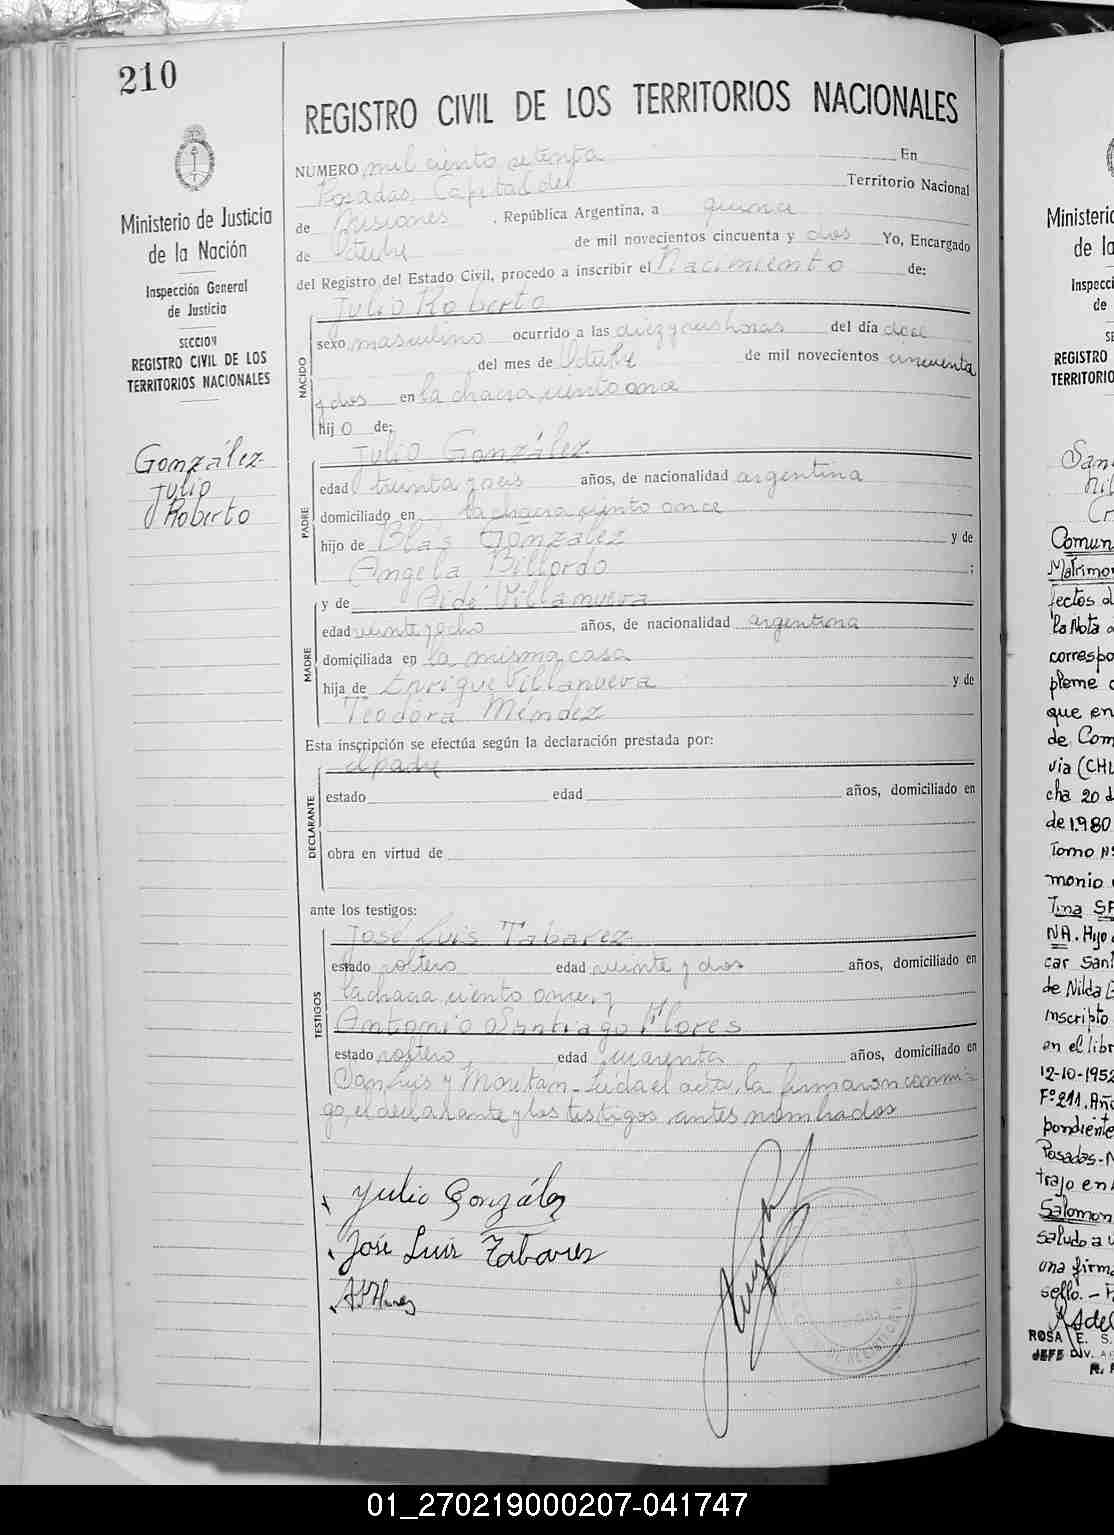 210
REGISTRO CIVIL DE LOS TERRITORIOS NACIONALES
Ministerio de Justicia
de la Nación
Inspección General
de Justicia
SECCION
REGISTRO CIVIL DE LOS
TERRITORIOS NACIONALES
González
Julio
Roberto
NUMERO mil ciento setenta En
Posadas, Capital del Territorio Nacional
de Misiones, República Argentina, a quince
de Octubre de mil novecientos cincuenta y dos Yo, Encargado
del Registro del Estado Civil, procedo a inscribir el Nacimiento de:
Julio Roberto
NACIDO
sexo masculino ocurrido a las diez y seis horas del día doce
del mes de Octubre de mil novecientos cincuenta
y dos en la chacra ciento once
hijo de:
Julio González
PADRE
edad treinta y seis años, de nacionalidad argentina
domiciliado en la chacra ciento once
hijo de Blas González y de
Angela Billordo;
y de Aidé Villanueva
MADRE
edad veinte y ocho años, de nacionalidad argentina
domiciliada en la misma casa
hija de Enrique Villanueva y de
Teodora Méndez
Esta inscripción se efectúa según la declaración prestada por:
el padre
DECLARANTE
estado edad años, domiciliado en
obra en virtud de
ante los testigos:
José Luis Tabarez
TESTIGOS
estado soltero edad veinte y dos años, domiciliado en
la chacra ciento once y
Antonio Santiago Flores
estado soltero, edad cuarenta años, domiciliado en
San Luis y Moritán. Leída el acta, la firmaron conmi-
go, el declarante y los testigos antes nombrados
Julio González
José Luis Tabares
Ministerio
de la
Inspecci
de
REGISTRO
TERRITORIO
Comun
Matrimon
fectos d
la Nota
correspo
pleme
que en
de Com
via (CHL
cha 20 d
de 1.980
Tomo
monio
Tina
NA. Hijo
car Sant
de Nilda
Inscripto
en el libr
12-10-1952
Fº 211. Año
pondiente
Posadas-
trajo en
Salomon
saludo a
una firma
sello. -
ROSA E. S.
JEFE DIV.
01_270219000207-041747